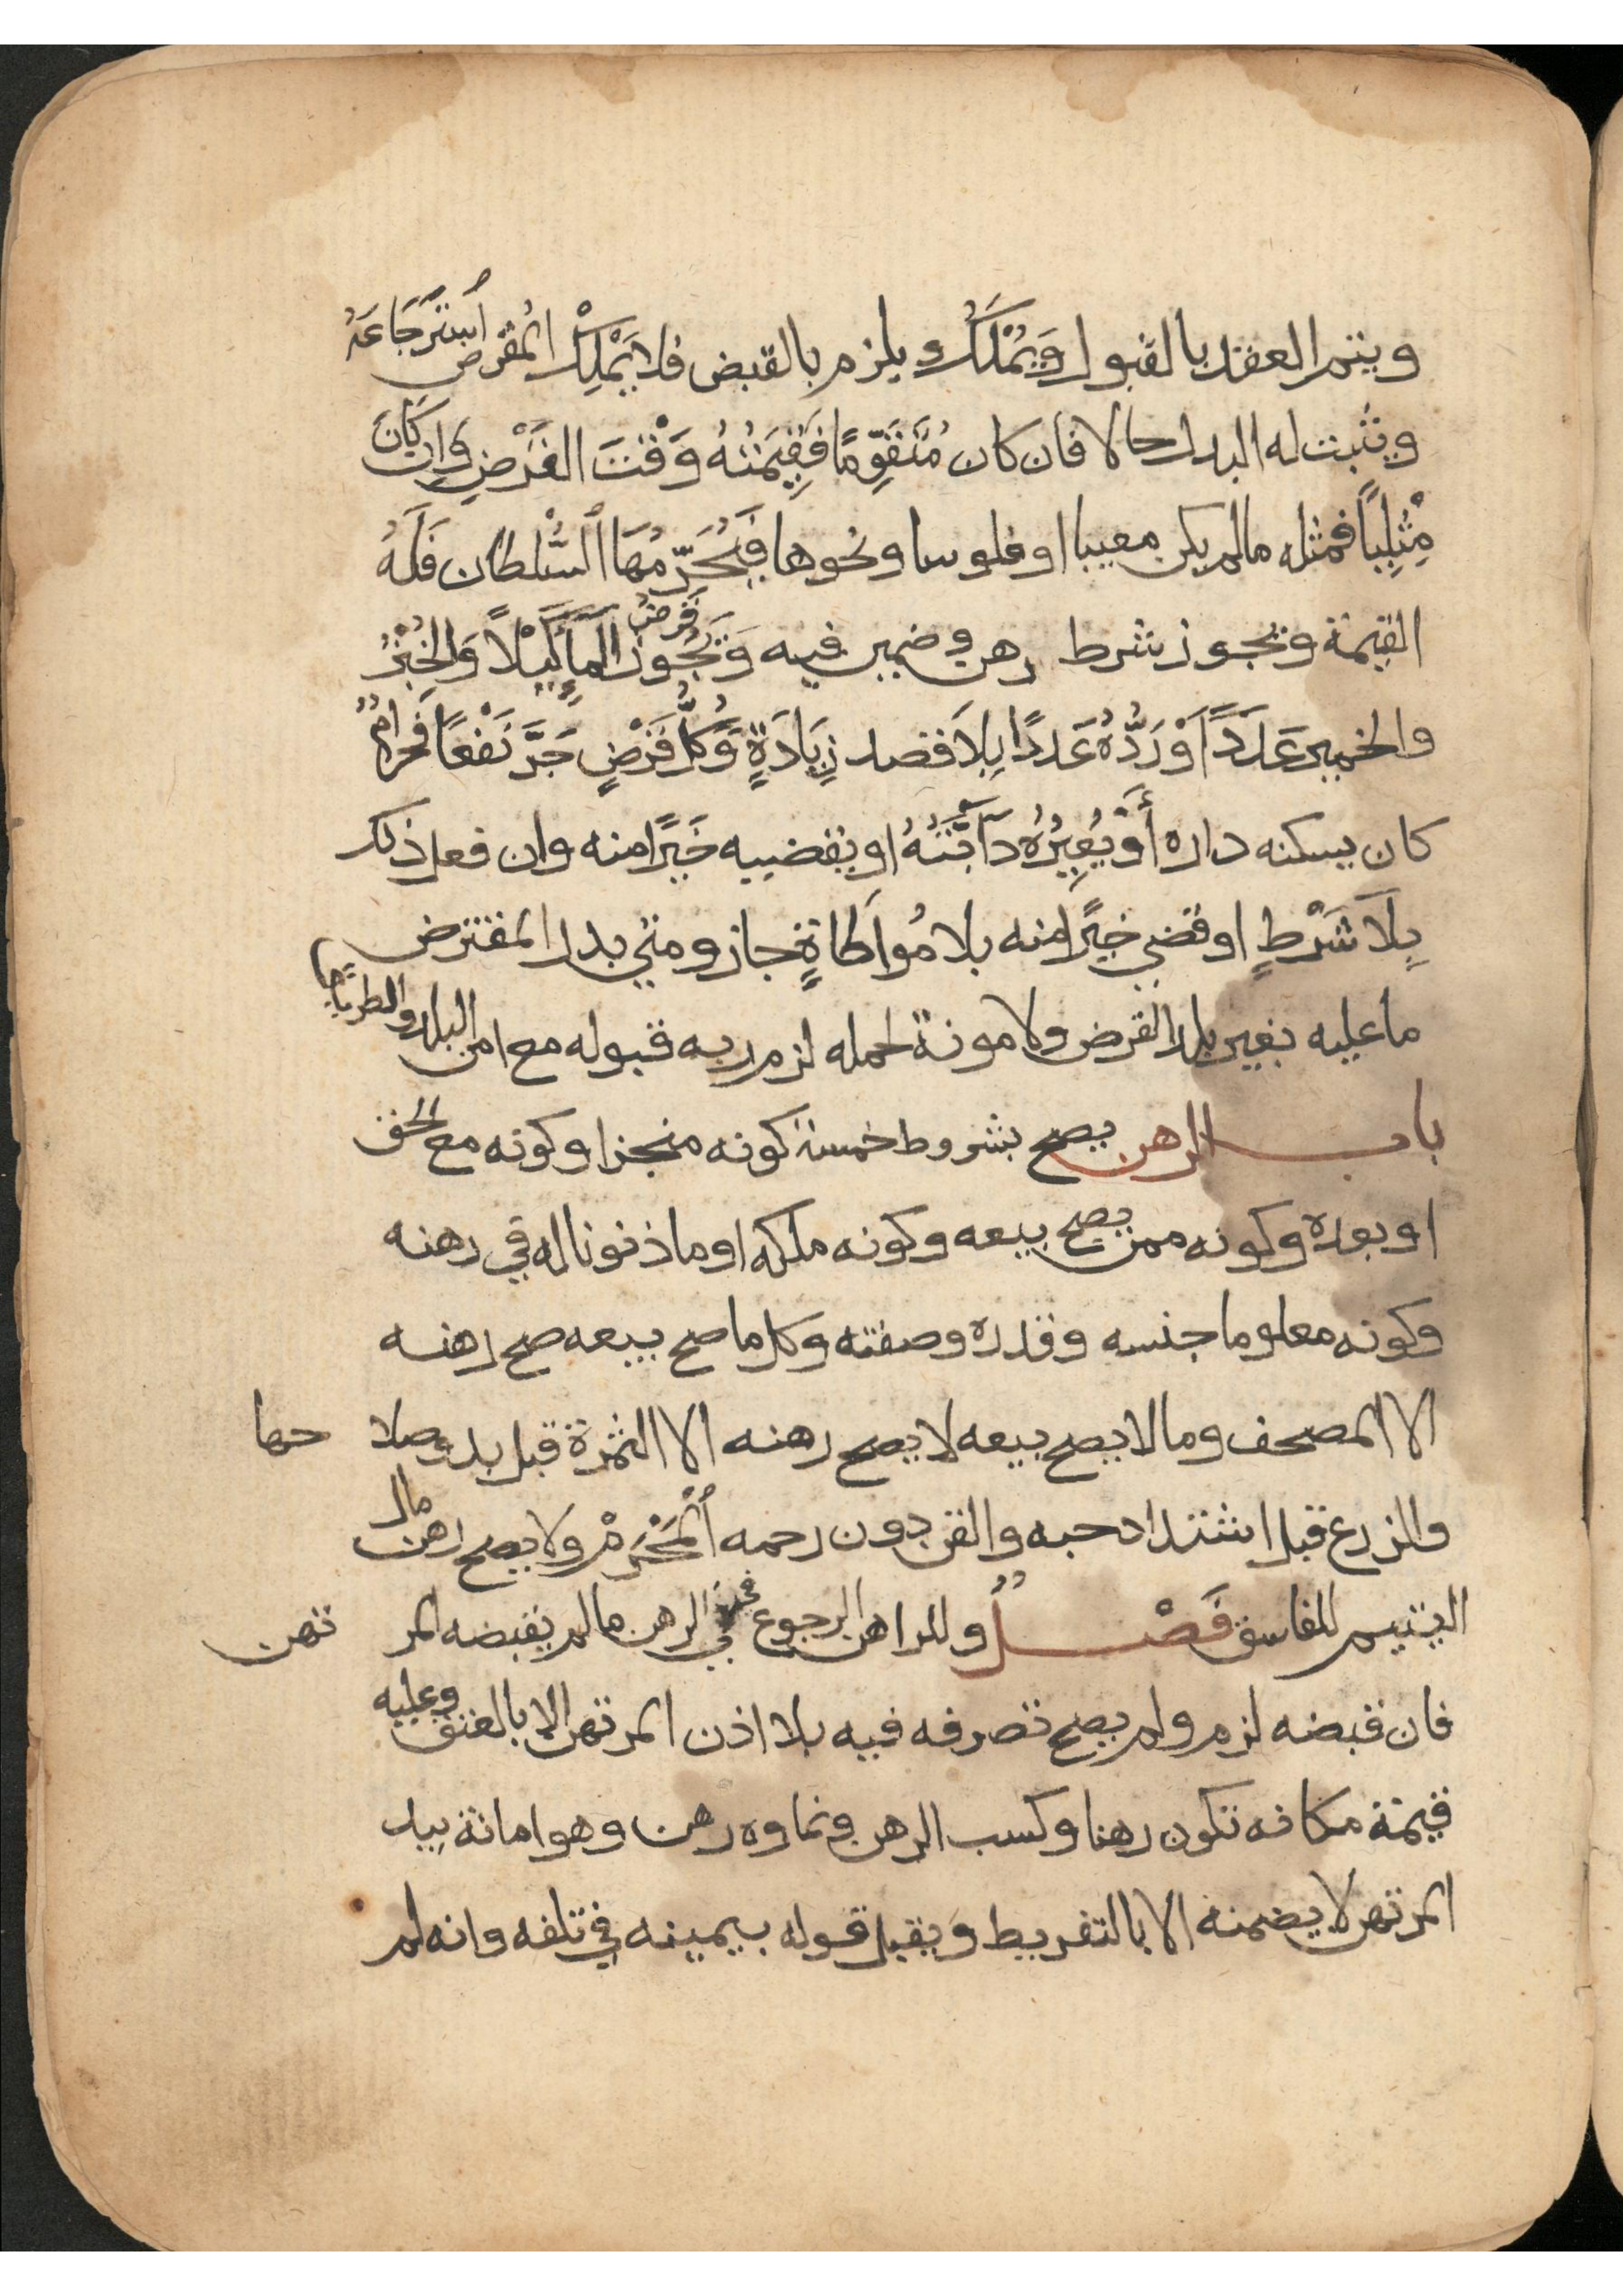 ويتم العقد بالقبول وَيُمْلَكُ ويلزم بالقبض فلا يَمْلِكْ المُقرض اسْتِرْجَاعَهُ
ويثبت له البدل حالا فان كان مُتَقَوِّمًا فَقِيمَتُهُ وَقْتَ القَرْضِ وَاِن كَانَ
مِثْلِيًا فمثله مالم يكن معيبا او فلوسا ونحوها فَيُحَرِّمُهَا السُّلطان فَلَهُ
القيمة ويجوز شرط رهن وضمين فيه وَيَجُوزُ قَرضُ المآءِ كَيْلًا وَالخُبْزُ
والخمير عَدَدًا وَرَدُّهُ عَدَدًا بِلَا قصد زِيَادَةٍ وَكُلُّ قَرْضٍ جَرَّ نَفْعًا فَحرامٌ
كان يسكنه داره أَوْ يُعِيرُهُ دَآبَّتَهُ او يقضيه خَيْرًا منه وان فعل ذلك
بِلَا شَرْطٍ او قضي خَيْرًا منه بلا مُواطَاةٍ جاز ومتي بدل المقترض
ما عليه بغير بلد القرض ولا مونة لحمله لزم ربه قبوله مع امن البلد والطريق
باب الرهن يصح بشروط خمسة كونه منجزا وكونه مع الحق
او بعده وكونه ممن يصح بيعه وكونه ملكه او ماذنونا له في رهنه
وكونه معلوما جنسه وقدره وصفته وكل ما صح بيعه صح رهنه
الا المصحف وما لا يصح بيعه لا يصح رهنه الا الثمرة قبل بدو صلا حها
والزرع قبل اشتداد حبه والقن دون رحمه اَلْمَحْرَمْ ولا يصح رهن مال
اليتيم للفاسق فَصْلٌ وللراهن الرجوع في الرهن مالم يقبضه المر تهن
فان قبضه لزم ولم يصح تصرفه فيه بلا اذن المرتهن الا بالعتق وعليه
قيمة مكانه تكون رهنا وكسب الرهن ونماوه رهن وهو امانة بيد
المرتهن لا يضمنه الا بالتفريط ويقبل قوله بيمينه في تلفه وانه لم